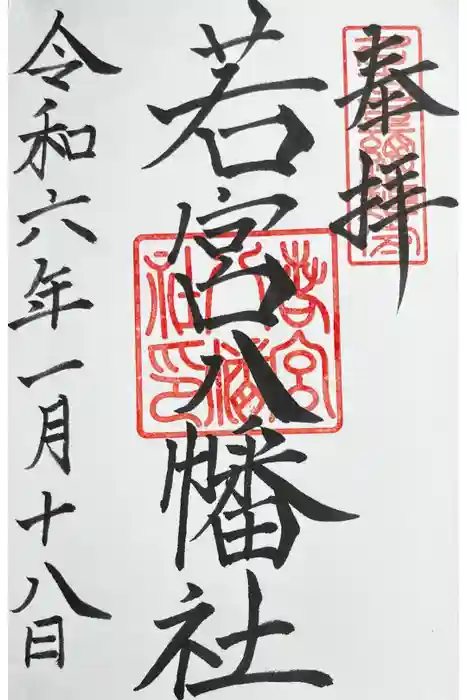 奉拝
若宮八幡社
若宮八幡社印
令和六年一月十八日